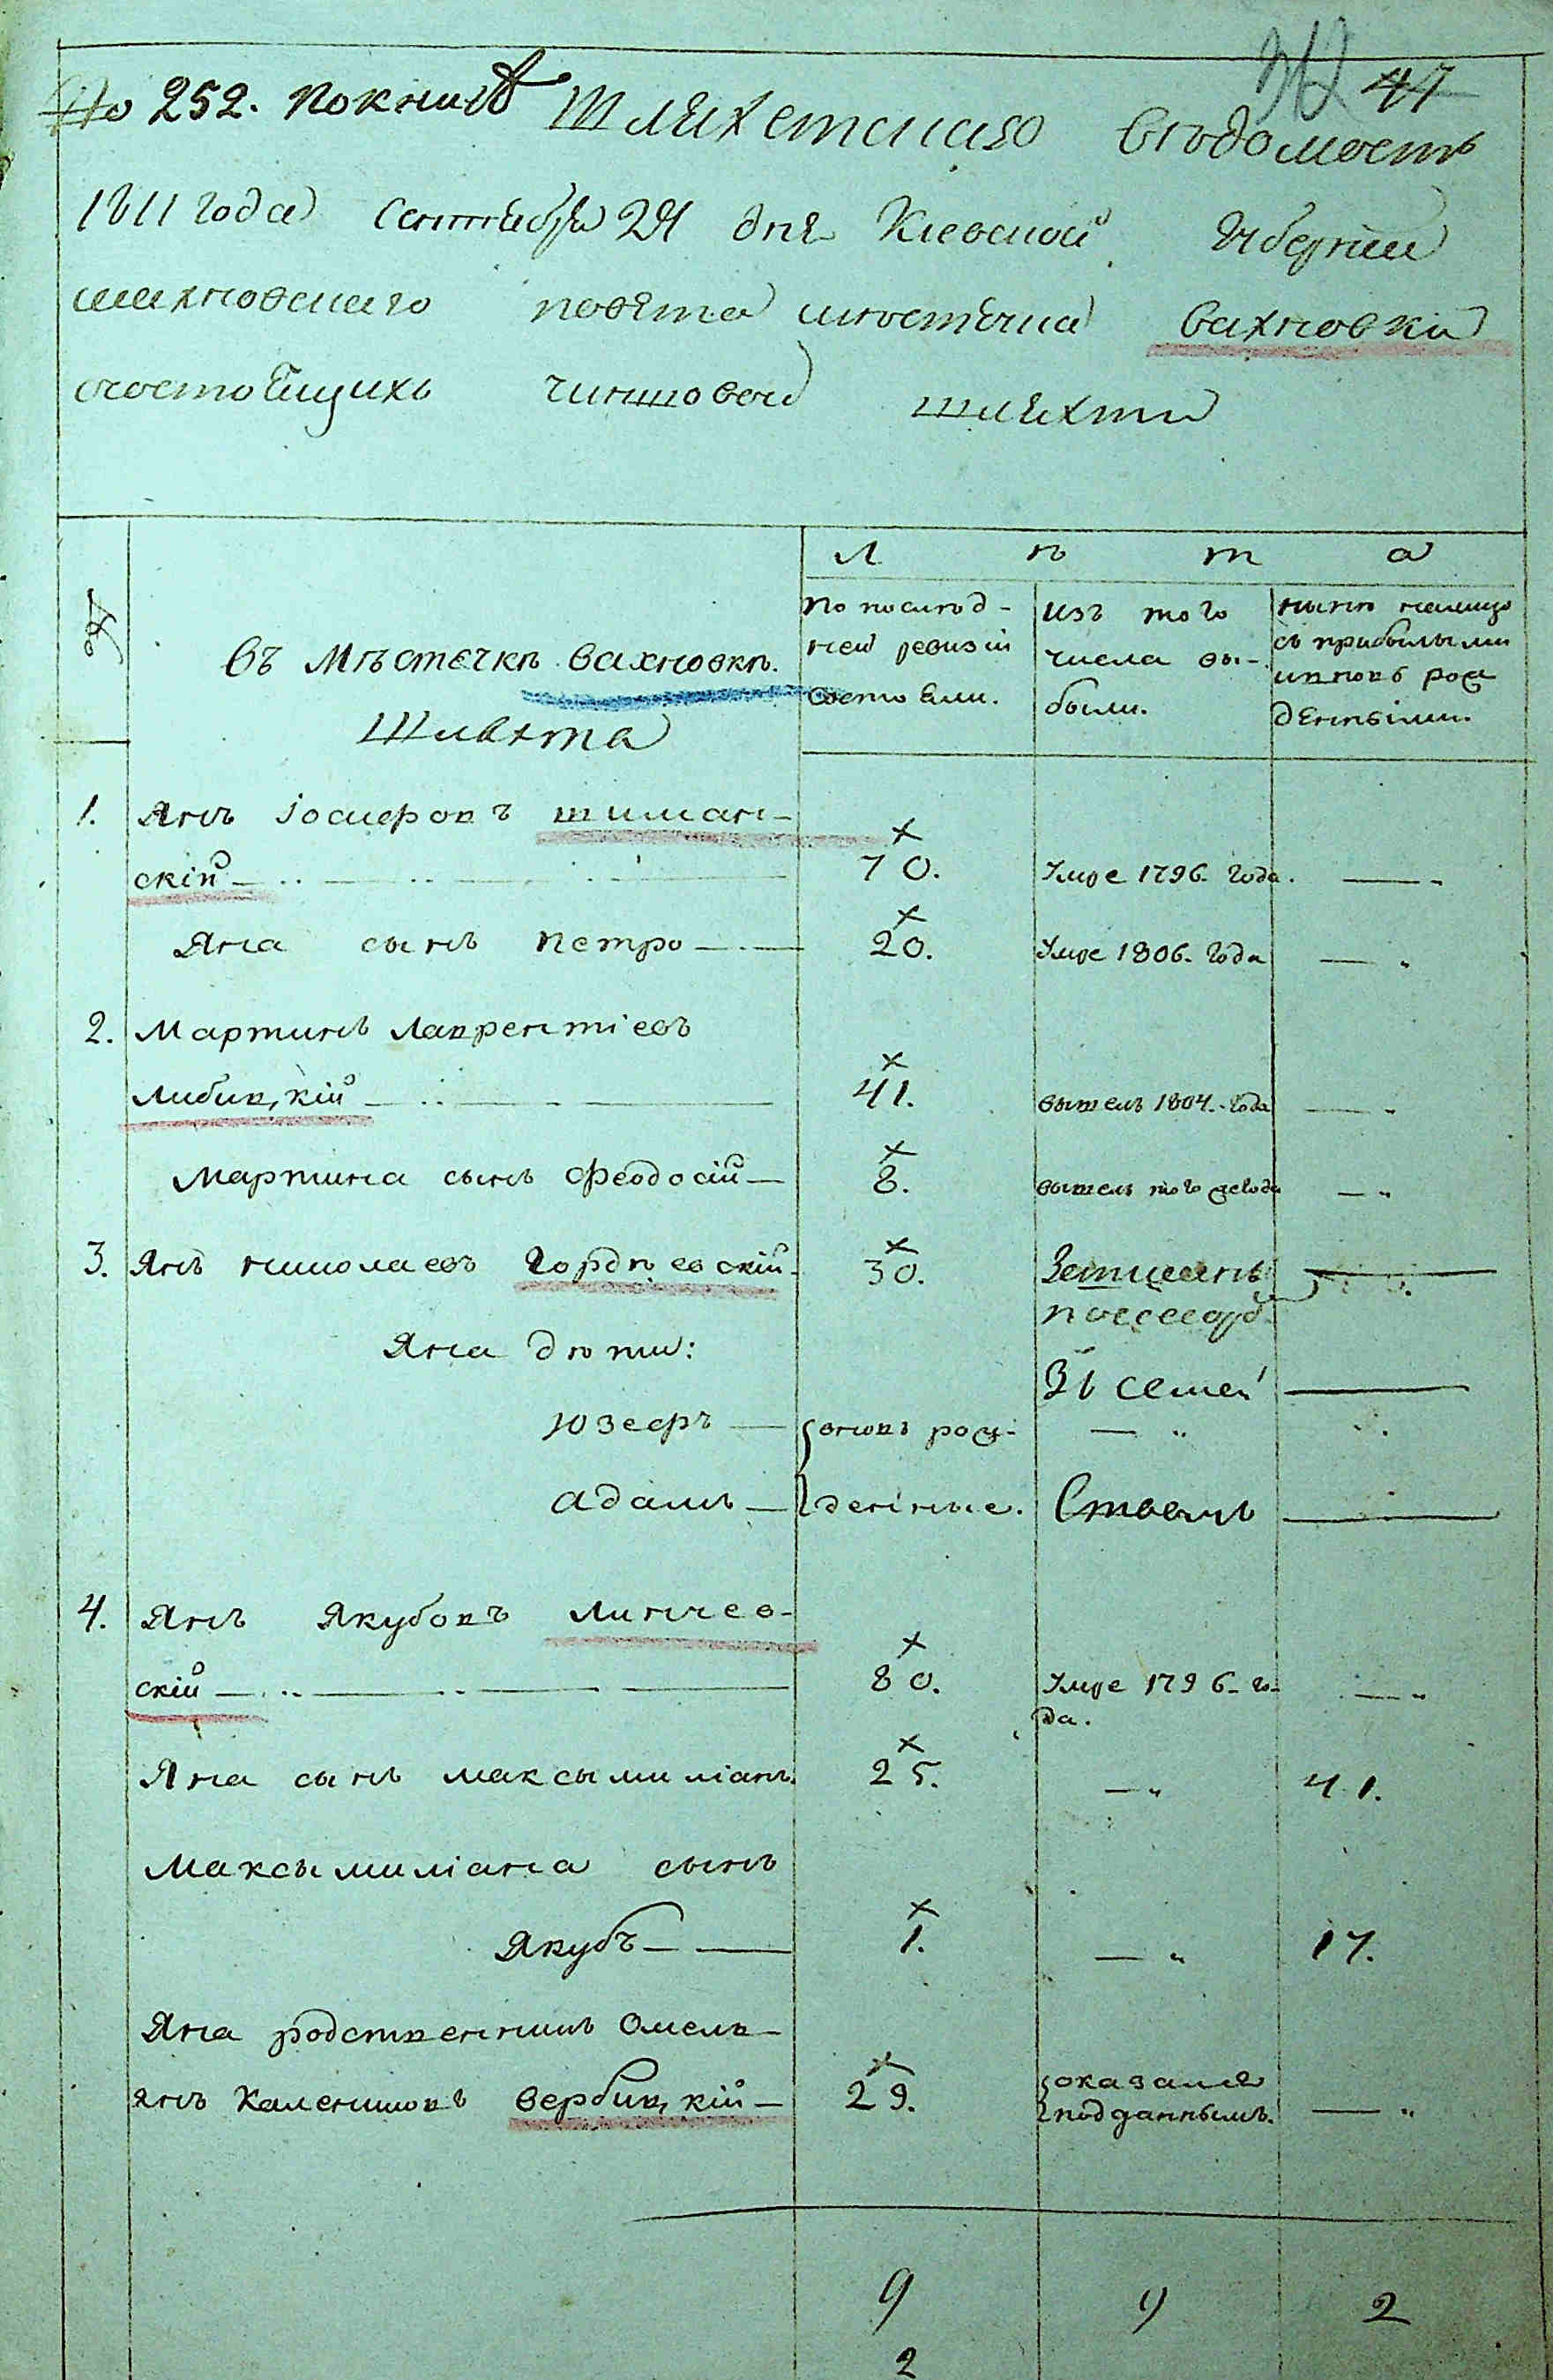 № 252. по книге 47
Шляхетская вѣдомость
1811 года Сентября 29 дня Киевской Губерніи
махновскаго повѣта мѣстечка Вахновки
состоящихъ чиншовой шляхти
№ Л ѣ т а
въ Мѣстечкѣ вахновкѣ.
Шляхта
по послѣд-
ней ревизіи
состояли.
изъ того
числа вы-
были.
нынѣ налицо
съ прибылыми
и вновь рож
денными.
1. Янъ Іосифовъ шиман-
скій 70. Умре 1796 года. —
Яна сынъ Петро — 20. Умре 1806. года —
2. Мартинъ Лаврентіевъ
Либицкій 41. вышелъ 1804. года —
Мартина сынъ Феодосій — 8. вышелъ того же года —
3. Янъ николаевъ Гордѣевскій 30. —
поссесоръ
Яна дѣти:
семей —
Юзефъ — вновь рож-
Адамъ — денные. —
4. Янъ Якубовъ Линчев-
скій — 80. Умре 1796 го-
да. —
Яна сынъ максымиліанъ. 25. — 41.
Максымиліана сынъ
Якубъ — 1. — 17.
Яна родственникъ Омель-
янъ Калениковъ Вербицкій — 29. оказался
подданнымъ. —
9 9 2
2